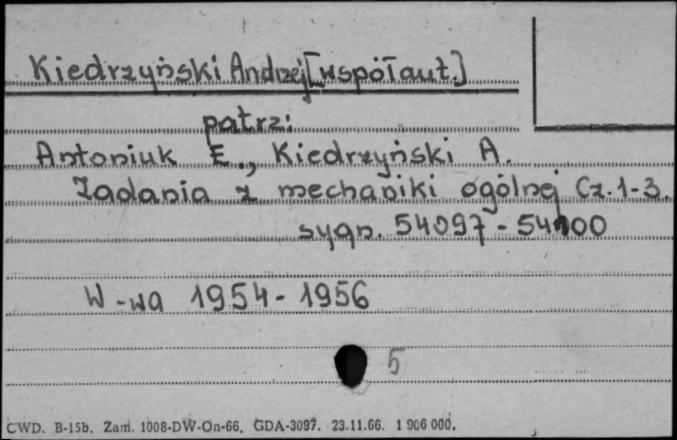 Kiedrzyński Andrzej [współaut.]
patrz:
Antoniuk E., Kiedrzyński A.
Zadania z mechaniki ogólnej Cz. 1-3.
sygn. 54097 - 54100
W-wa 1954 - 1956
5
CWD. B-15b. Zam. 1008-DW-On-66. GDA-3097. 23.11.66. 1 906 000.